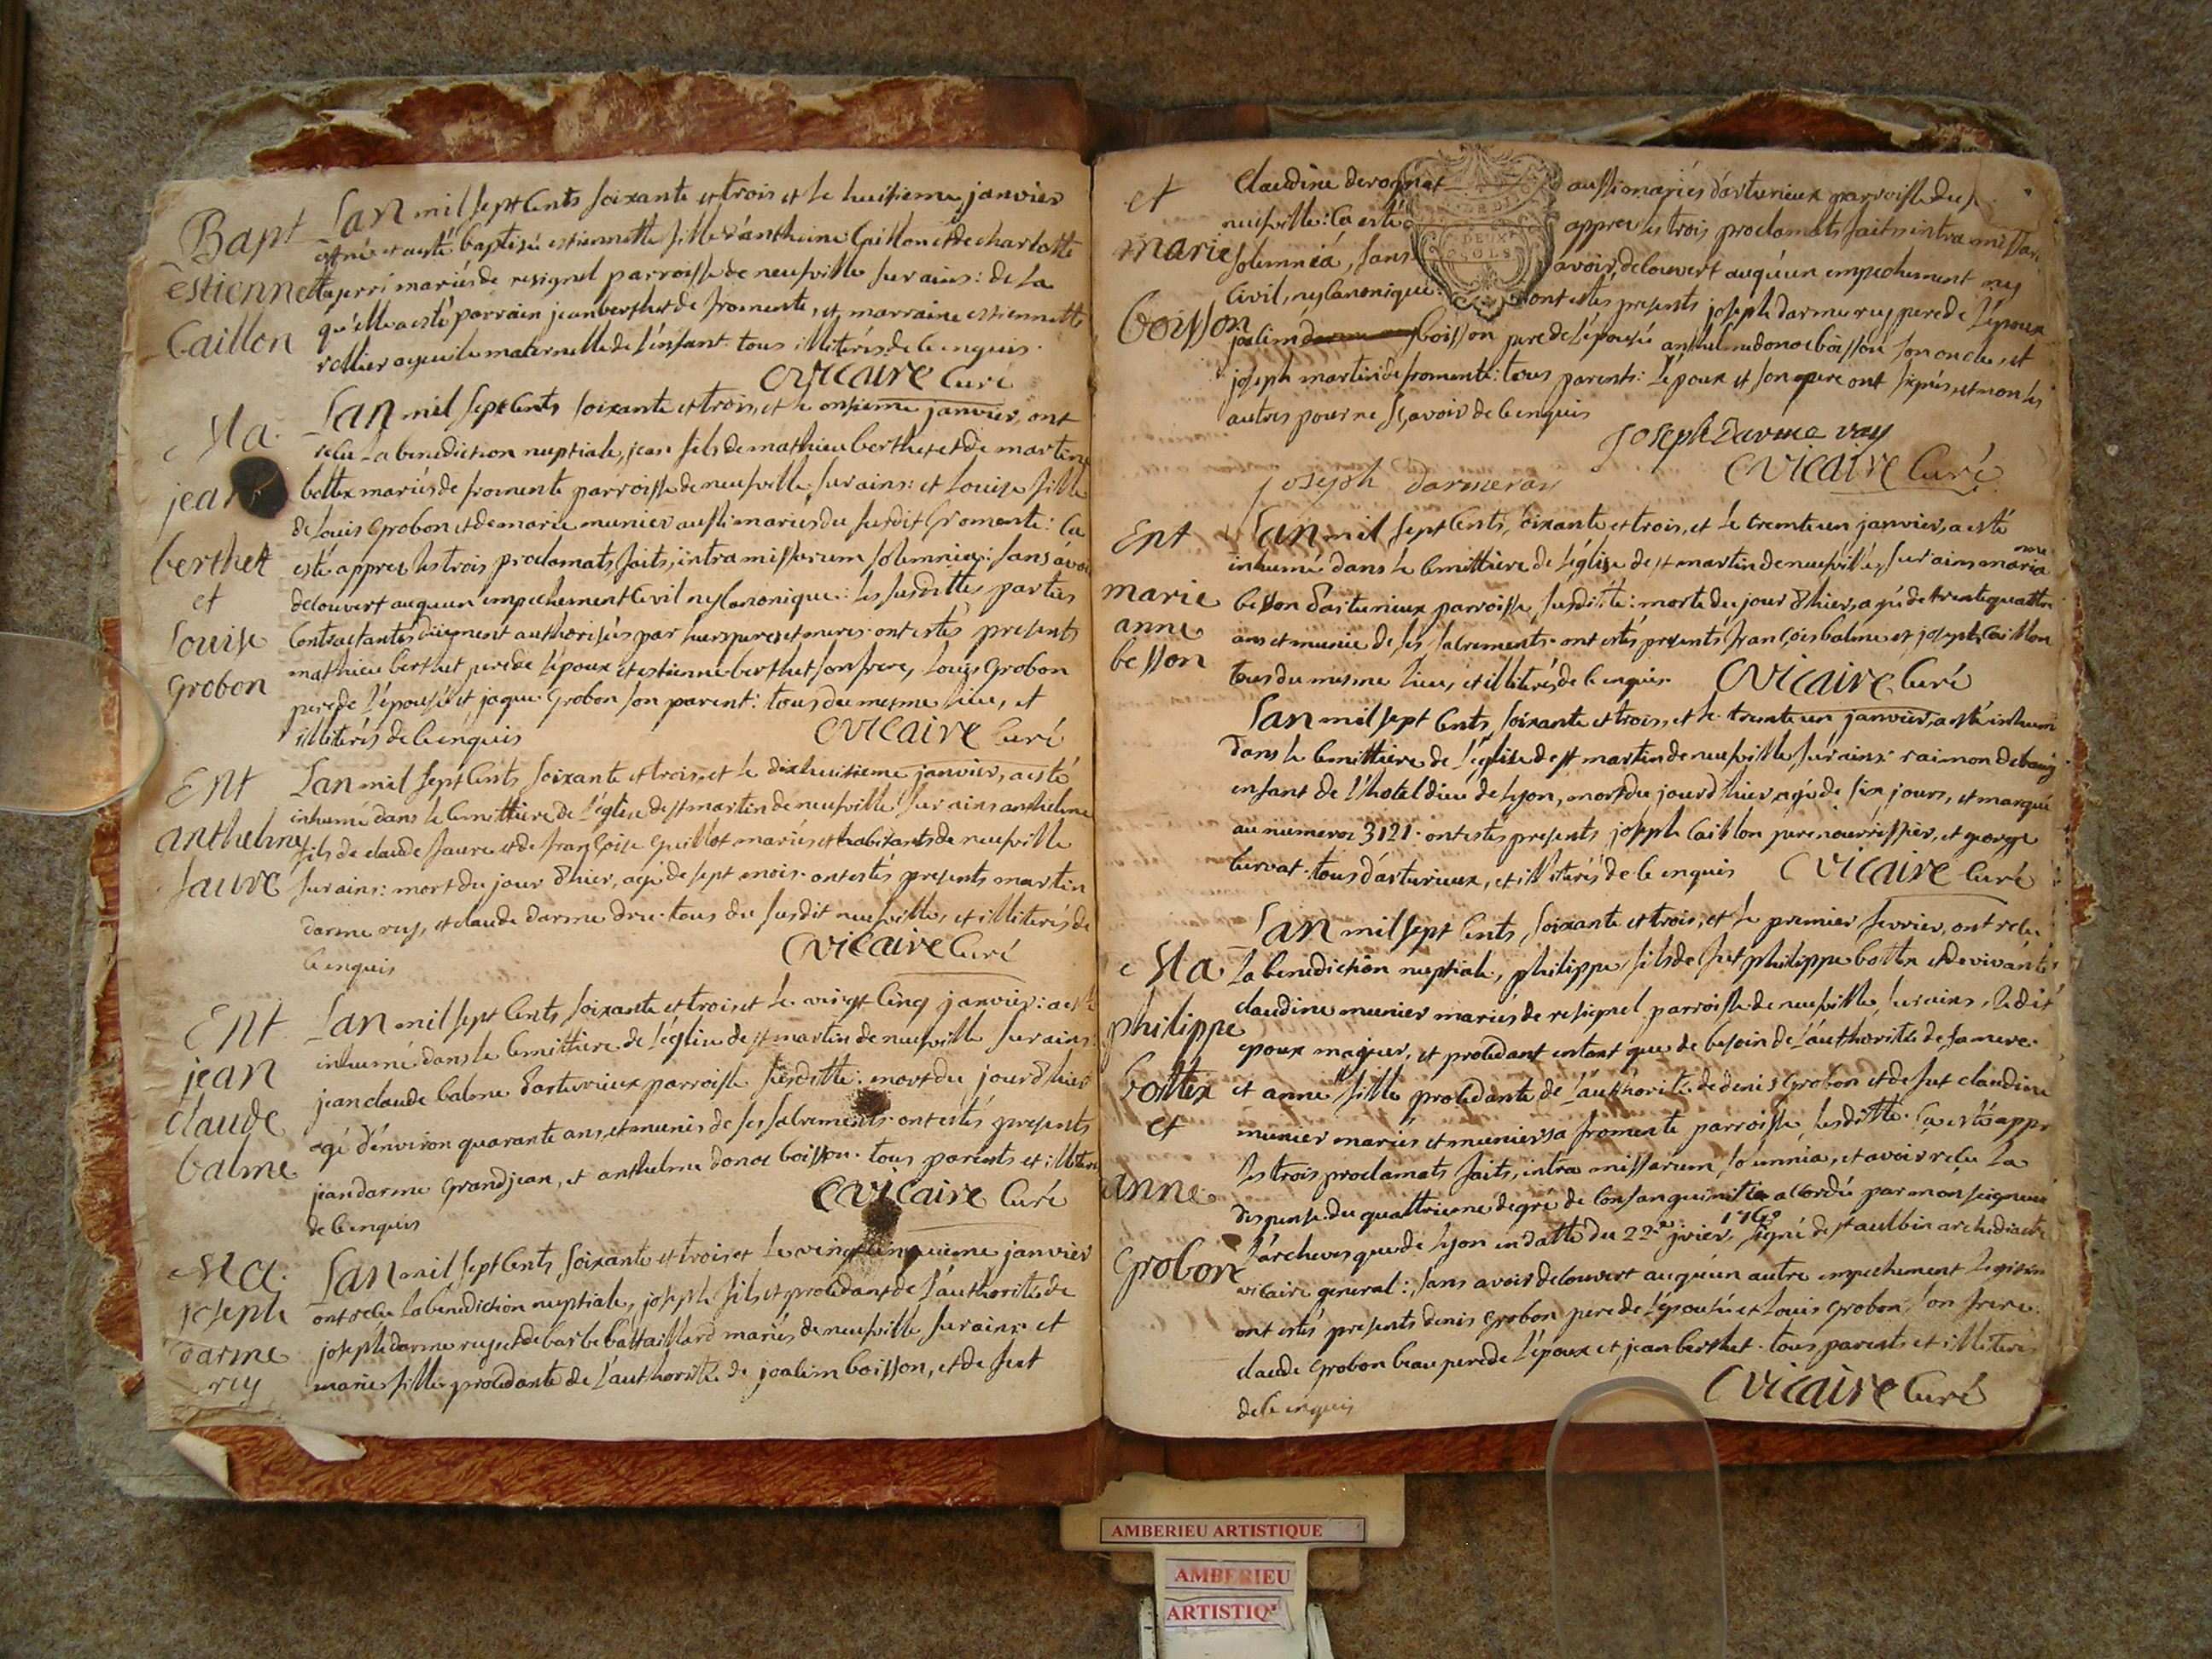 Bapt
estiennette
Caillon
L'an mil sept cents soixante et trois et le huitieme janvier
est née et a esté baptisée estiennette fille d'antheine Caillon et de charlotte
mariés de resignel parroisse de neufville sur ains: de la
qu'elle a esté parrain jean berthet de fromente, et marraine estiennette
rollier ayeule maternelle de l'enfant tous illiterés de ce enquis
CVicaire Curé
Ma.
jean
berthet
et
Louise
grobon
L'an mil sept cents soixante et trois, et le onzieme janvier, ont
reçu La benediction nuptiale, jean fils de mathieu berthet et de martine
bottex mariés de fromente parroisse de neufville sur ains: et Louise fille
de Louis grobon et de marie munier aussi mariés du susdit fromente: Ca
esté appres les trois proclamats faits, intra missarum solemnia: sans avoir
decouvert auqueun empechement Civil ny Canonique: les susdittes parties
Contractantes duement authorisés par leurs peres et meres ont estés presents
mathieu berthet pere de l'époux et estienne berthet son frere, Louis grobon
pere de l'épousée et jaque grobon son parent: tous du mesme lieu, et
illiterés de ce enquis
CVicaire Curé
Ent
anthelme
faure
L'an mil sept cents soixante et trois, et le dixhuitieme janvier, a esté
inhumé dans le cemittiere de l'église de st martin de neufville sur ains anthelme
fils de claude faure et de françoise guillot mariés et habitants de neufville
sur ains: mort du jour d'hier, agé de sept mois ont estés presents martin
darme rey, et claude darme dru tous du susdit neufville, et illiterés de
ce enquis
CVicaire Curé
Ent
jean
claude
balme
L'an mil sept cents soixante et trois et le vingt cinq janvier: a esté
inhumé dans le cemittiere de l'église de st martin de neufville sur ains
jean claude balme d'arturieux parroisse susditte: mort du jour d'hier
agé d'environ quarante ans, et munis de ses sacrements ont estés presents
jean darme grandjean, et anthelme donoc boisson tous parents et illiterés
de ce enquis
CVicaire Curé
Ma.
joseph
darme
rey
L'an mil sept cents soixante et trois et Le vingt cinquieme janvier
ont reçu La benediction nuptiale, joseph fils et procedant de L'authorité de
joseph darme rey et de barbe battaillard mariés de neufville sur ains et
marie fille procedante de L'authorité de joacim boisson, et de fut
et
marie
boisson
claudine derognat aussi mariés d'arturieux parroisse du su
neufville: Ca esté appres les trois proclamats faits intra missar
solemnia, sans avoir decouvert auqueun empechement ny
Civil, ny Canonique: ont estés presents joseph darme rey pere de L'époux
joacim boisson pere de L'épousée anthelme donoc boisson son oncle, et
joseph martin de fromente: tous parents: L'époux et son pere ont signés, et non les
autres pour ne sçavoir de ce enquis
joseph Darme ray
CVicaire Curé
joseph Darmeray
Ent
marie
anne
besson
L'an mil sept Cents, soixante et trois, et Le trente un janvier, a esté
inhumé dans le Cemittiere de l'église de st martin de neufville, sur ains marie
anne
besson d'arturieux parroisse susditte: morte du jour d'hier, agé de trente quattre
ans et munie de ses sacrements ont estés presents françois balme et joseph Caillon
tous du mesme lieu, et illiterés de ce enquis CVicaire Curé
L'an mil sept Cents, soixante et trois, et le trente un janvier, a esté inhumé
dans le Cemittiere de L'église de st martin de neufville sur ains raimon
enfant de L'hotel dieu de Lyon, mort du jour d'hier agé de six jours, et marqué
au numero 3121 ont estés presents joseph Caillon pere nourrissier, et george
Curvat tous d'arturieux, et illiterés de ce enquis CVicaire Curé
Ma.
philippe
bottex
et
anne
grobon
L'an mil sept Cents, soixante et trois, et Le premier fevrier, ont reçu
La benediction nuptiale, philippe fils de fut philippe bottex et de vivante
claudine munier mariés de resignel parroisse de neufville sur ains, Ledit
epoux majeur, et procedant entant que de besoin de L'authorité de sa mere
et anne fille procedante de L'authorité de denis grobon et de fut claudine
munier mariés et muniers a fromente parroisse susditte. Ca esté appr
les trois proclamats faits, intra missarum solemnia, et avoir reçu La
dispense du quattrieme degré de consanguinité accordée par monseigneur
L'archevesque de Lyon en datte du 22e jvier 1763 signé de st aulbin archidiacre
vicaire general: sans avoir decouvert auqueun autre empechement
ont estés presents denis grobon pere de L'épousée et Louis grobon son frere
claude grobon beau pere de L'époux et jean berthet tous parents et illiterés
de ce enquis
CVicaire Curé
DEUX
SOLS
AMBERIEU ARTISTIQUE
AMBERIEU
ARTISTIQ